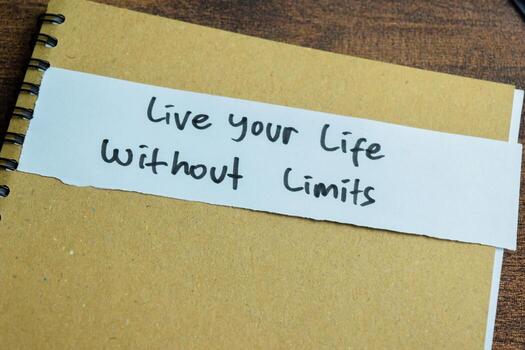 Live your Life
Without Limits